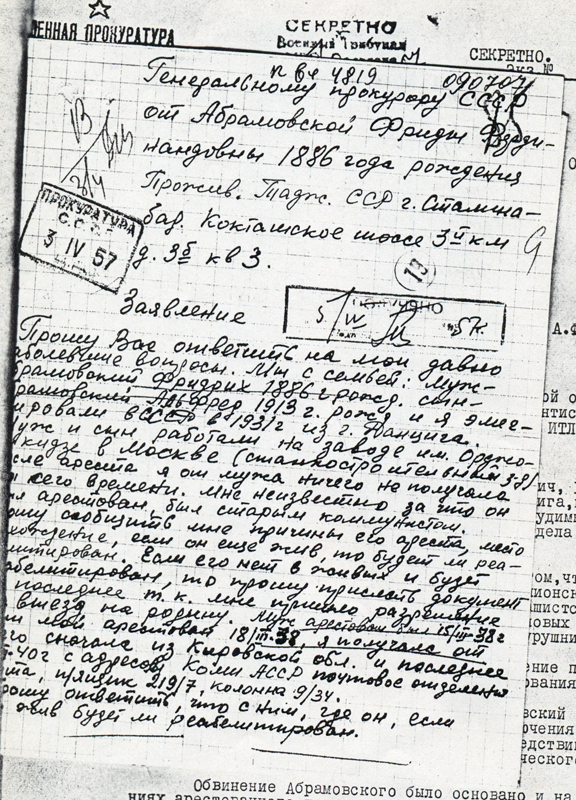 ЕННАЯ ПРОКУРАТУРА
СЕКРЕТНО
Военный Трибунал
СЕКРЕТНО.
экз. №
п вк 4819
090707
Генеральному прокурору СССР
от Абрамовской Фриды Ферди-
нандовны 1886 года рождения
Прожив. Тадж. ССР г. Сталина-
бад. Кокташское шоссе 3й км
д. 3б кв 3.
ПРОКУРАТУРА
С.С.С.Р.
3 IV 57
13
Заявление
ПОЛУЧЕНО
5/IV 57
Прошу Вас ответить на мои давно
аболевшие вопросы. Мы с семьей: муж-
брамовский Фридрих 1886 г рожд. сын-
брамовский Альфред 1913 г. рожд и я эмиг-
рировали в СССР в 1931 г из г. Данцига.
уж и сын работали на заводе им. Орджо-
икидзе в Москве (станкостроительный з-д)
сле ареста я от мужа ничего не получала
о сего времени. Мне неизвестно за что он
ыл арестован, был старым коммунистом.
ошу сообщить мне причины его ареста, место
хождение, если он еще жив, то будет ли реа-
литирован. Если его нет в живых и будет
абелитирован, то прошу прислать документ
последнее т.к. мне пришло разрешение
а выезд на родину. Муж арестован был 15/III-38 г
н мой арестован 18/III-38 я получала от
го сначала из Кировской обл. и последнее
-40 г с адресом Коми АССР почтовое отделения
та, п/ящик 219/7, колонна 9/34.
рошу ответить, что с ним, где он, если
жив будет ли реабелитирован.
А.Ф
ой о
нтис
ИТЛ
ич,
ига,
удим
дела
ом, что
пионск
шистс
довых
урушни
ение п
ования
вский
лючения
едстви
ческого
Обвинение Абрамовского было основано и на
ниях арестованного